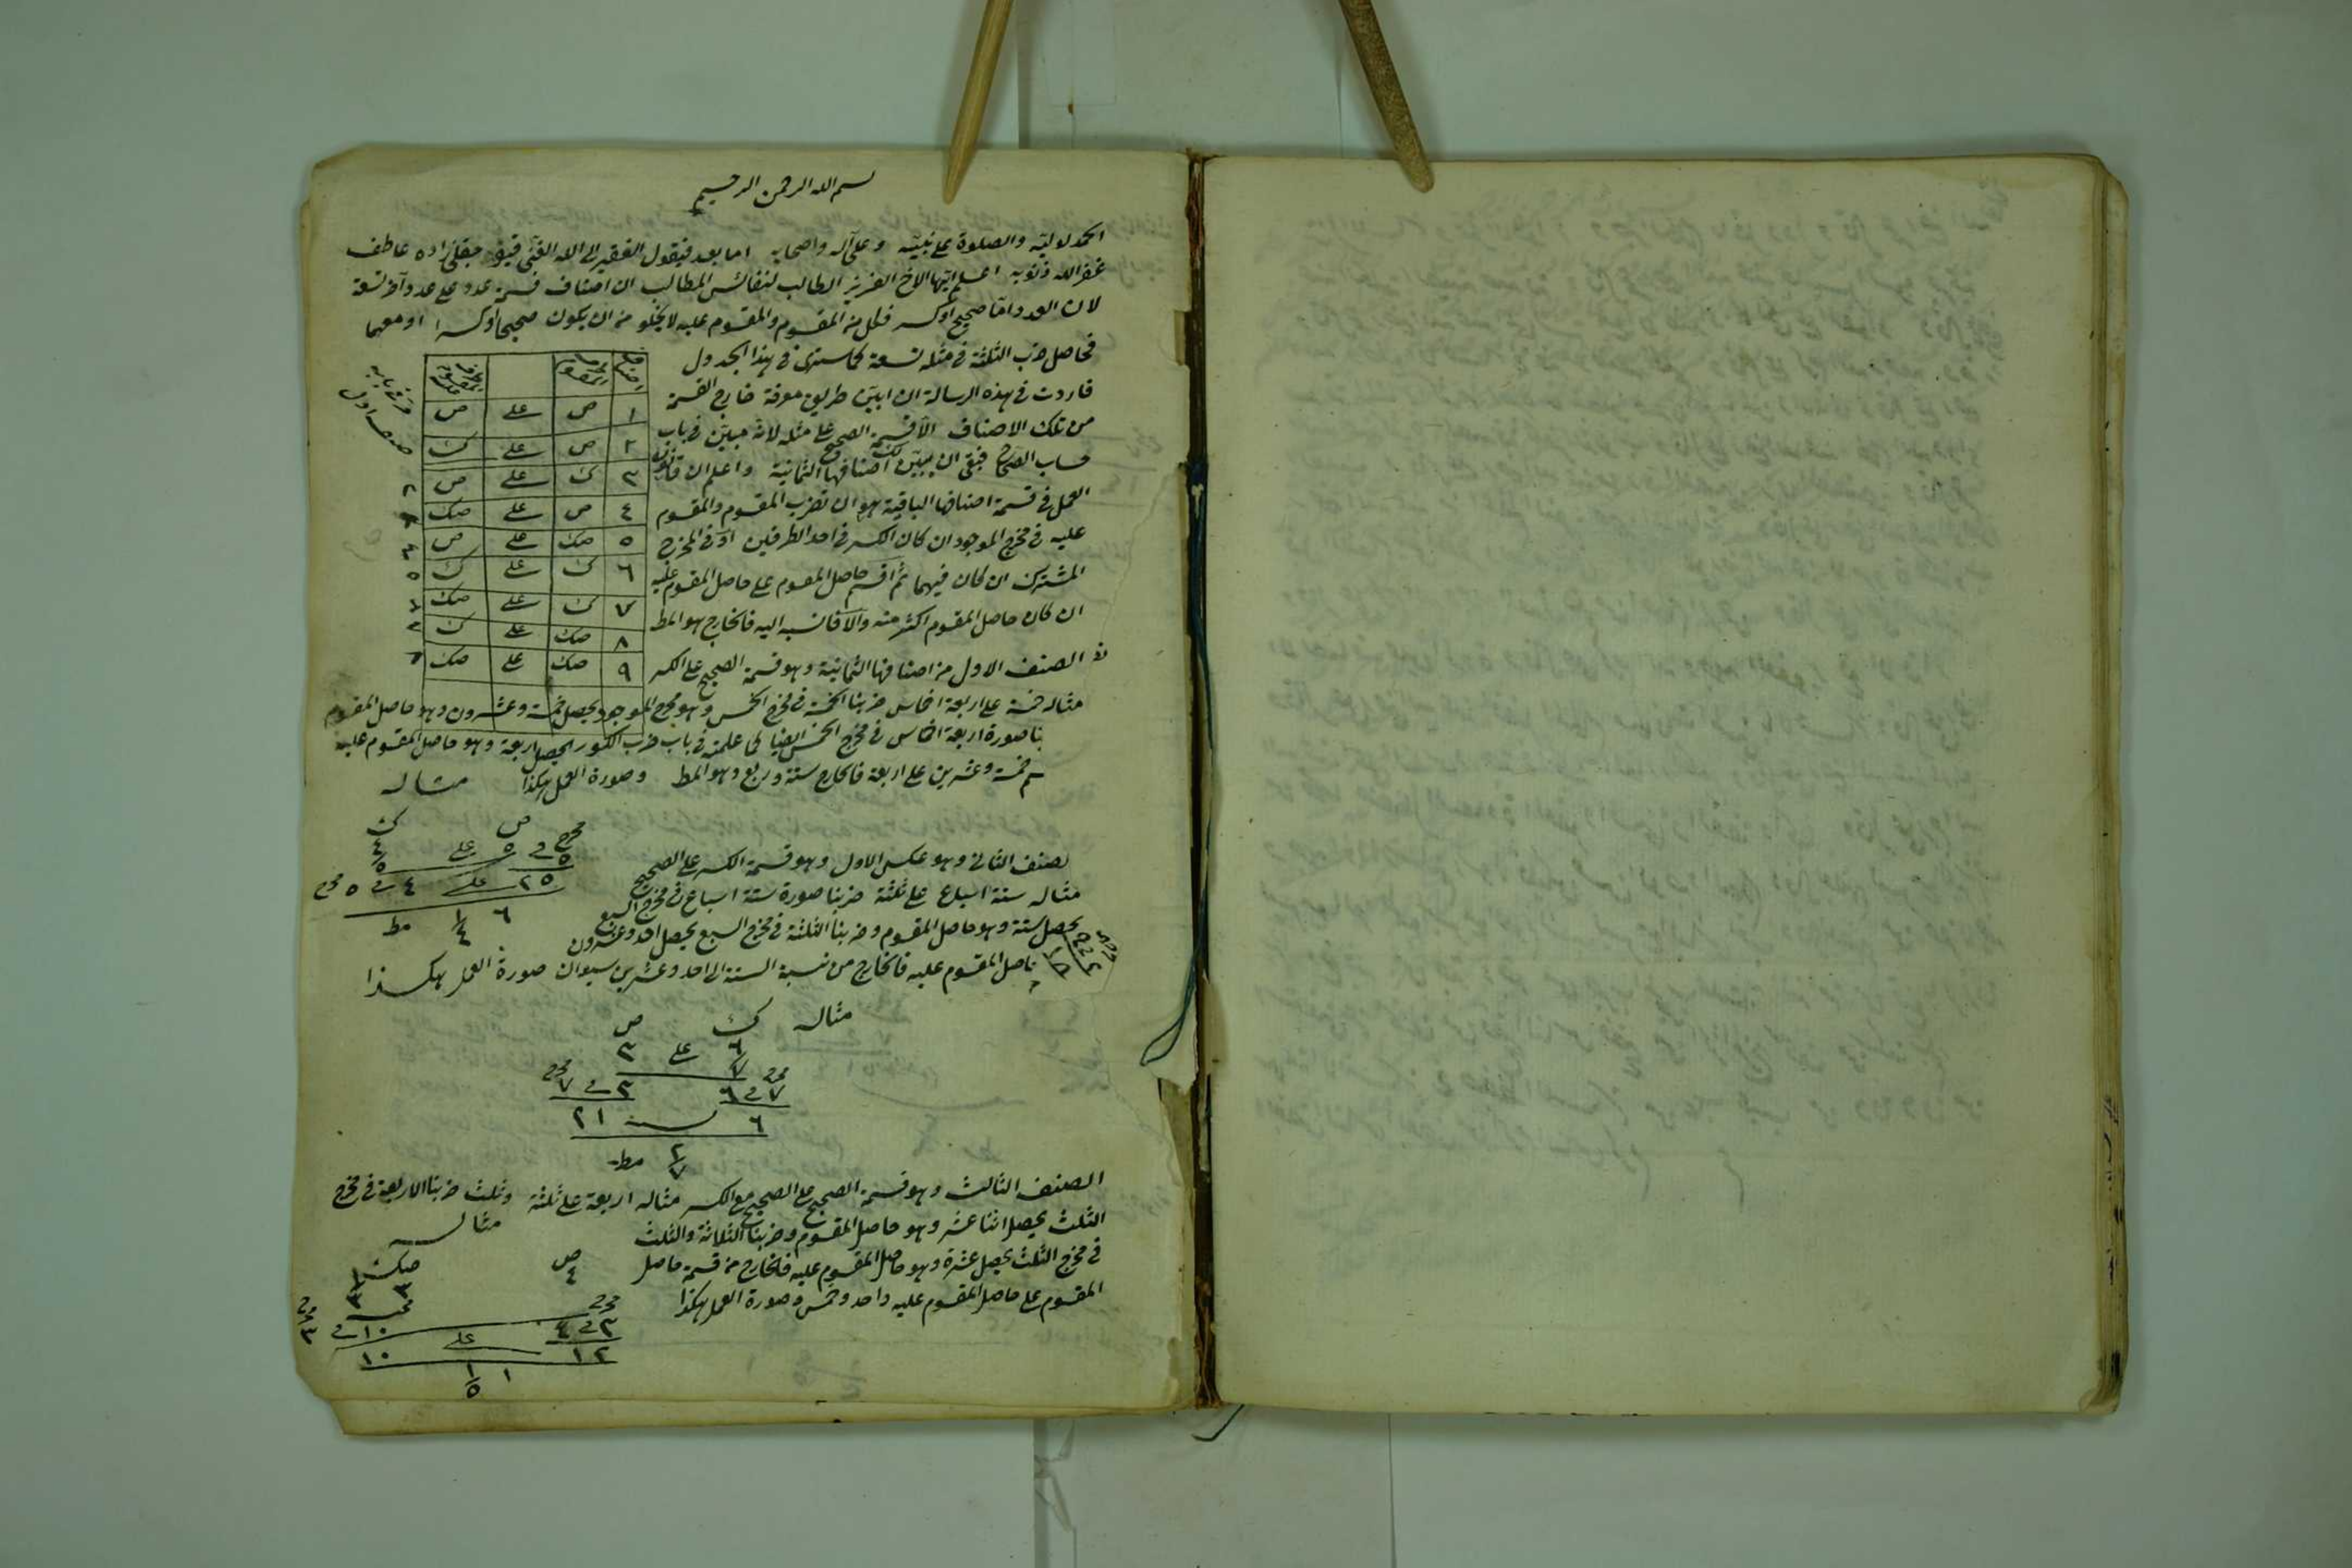 بسم الله الرحمن الرحيم
الحمد لوليه والصلوة على نبيه وعلى آله واصحابه اما بعد فيقول الفقير الى الله الغنى زاده عاطف
غفر الله ذنوبه اعلم ايها الاخ العزيز الطالب لنفائس المطالب ان اصناف قسمة عدد على عدد آخر تسعة
لان العدد اما صحيح او كسر فكل من المقسوم والمقسوم عليه لا يخلو من ان يكون صحيحا او كسرا او معهما
فحاصل ضرب الثلثة فى مثله تسعة كما سترى فى هذا الجدول
فاردت فى هذه الرسالة ان ابين طريق معرفة خارج القسمة
من تلك الاصناف الا قسمة الصحيح على مثله لانه مبين فى باب
حساب الصحاح فبقى ان يبين لك اصنافها الثمانية واعلم ان قانون
العمل فى قسمة اصنافها الباقية هو ان تضرب المقسوم والمقسوم
عليه فى مخرج الموجود ان كان الكسر فى احد الطرفين او فى المخرج
المشترك ان كان فيهما ثم اقسم حاصل المقسوم على حاصل المقسوم عليه
ان كان حاصل المقسوم اكثر منه والا فانسبه اليه فالخارج هو المط
١ ص على ص
٢ ص على ك
٣ ك على ص
٤ ص على صك
٥ صك على ص
٦ ك على ك
٧ ك على صك
٨ صك على ك
٩ صك على صك
الصنف الاول من اصنافها الثمانية وهو قسمة الصحيح على الكسر
مثاله خمسة على اربعة اخماس ضربنا الخمسة فى مخرج الخمس وهو مخرج الموجود يحصل خمسة وعشرون وهو حاصل المقسوم
بنا صورة اربعة اخماس فى مخرج الخمس ايضا كما علمته فى باب ضرب الكسور يحصل اربعة وهو حاصل المقسوم عليه
خمسة وعشرين على اربعة فالخارج ستة وربع وهو المط وصورة العمل هكذا مثاله
ص ك
مخرج ٥ فى ٥ على ٤ ٥
٢٥ على ٤ فى ٥ مخرج
٦ ١ ٤ مط
لصنف الثانى وهو عكس الاول وهو قسمة الكسر على الصحيح
مثاله ستة اسباع على ثلثة ضربنا صورة ستة اسباع فى مخرج السبع
يحصل ستة وهو حاصل المقسوم وضربنا الثلثة فى مخرج السبع يحصل احد وعشرون
حاصل المقسوم عليه فالخارج من نسبة الستة الى احد وعشرين سبعان صورة العمل هكذا
مثاله ك ص
٦ ٧ على ٣
مخرج ٧ فى ٦ ٣ فى ٧ مخرج
٦ نسبة ٢١
٢ ٧ مط
الصنف الثالث وهو قسمة الصحيح على الصحيح مع الكسر مثاله اربعة على ثلثة وثلث ضربنا الاربعة فى مخرج
الثلث يحصل اثنا عشر وهو حاصل المقسوم وضربنا الثلاثة والثلث مثاله
فى مخرج الثلث يحصل عشرة وهو حاصل المقسوم عليه فالخارج من قسمة حاصل
المقسوم على حاصل المقسوم عليه واحد وخمس وصورة العمل هكذا
ص صك
٤ ٣ ١ ٣
مخرج ٣ فى ٤ ١٠ فى ٣ مخرج
١٢ على ١٠
١ ١ ٥